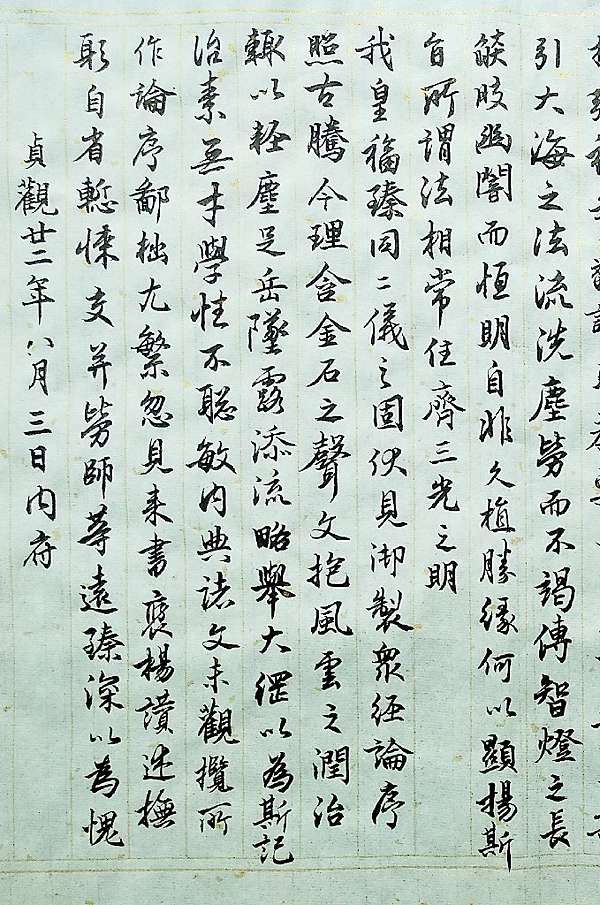 引大海之法流洗塵勞而不竭傳智燈之長
燄皎幽闇而恒明自非久植勝緣何以顯揚斯
旨所謂法相常住齊三光之明
我皇福臻同二儀之固伏見御製眾经論序
照古騰今理含金石之聲文抱風雲之潤治
輒以輕塵足岳墜露添流略舉大綱以為斯記
治素無才學性不聡敏内典諸文未觀攬所
作論序鄙拙尤繁忽見来書褒揚讃述撫
躬自省慙悚交并勞師等遠臻深以為愧
貞觀廿二年八月三日内府